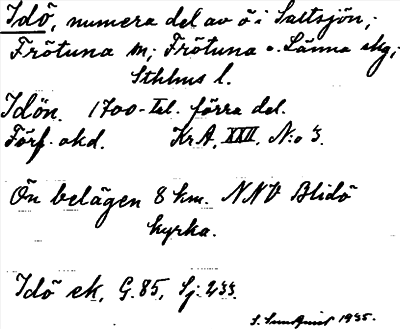 Idö, numera del av ö i Saltsjön,
Frötuna sn; Frötuna o. Länna skg;
Sthlms l.
Idön. 1700-tal. förra del.
Förf. okd. Kr A, XXII, N:o 3.
Ön belägen 8 km. NNV Blidö
kyrka.
Idö ek, G. 85, Sj. 233.
S. 1935.